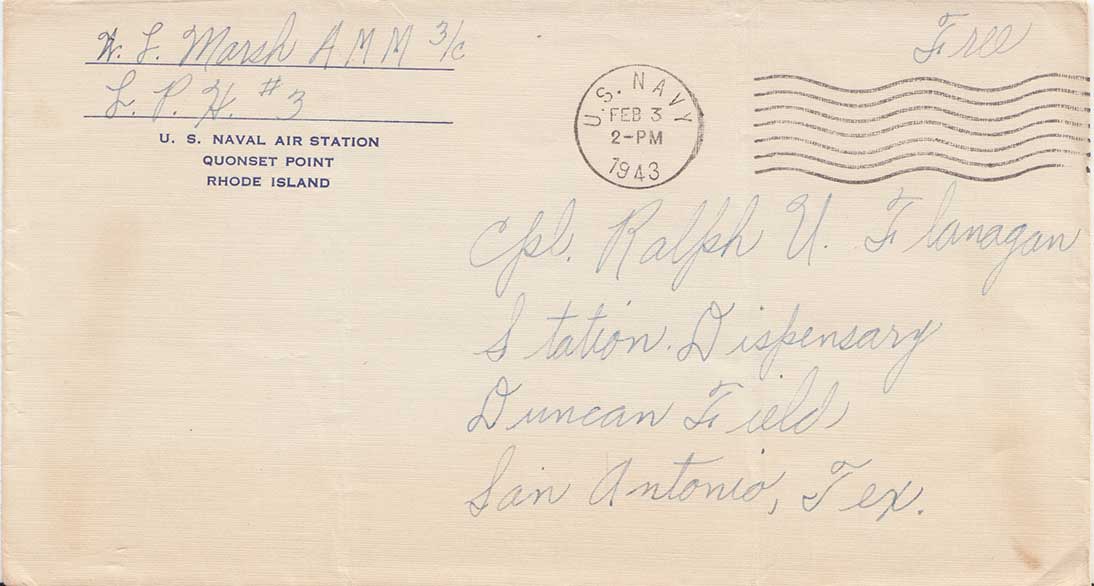 W. L. Marsh AMM 3/c
L. P. H. #3
U. S. NAVAL AIR STATION
QUONSET POINT
RHODE ISLAND
U.S. NAVY
FEB 3
2-PM
1943
Free
Cpl. Ralph U. Flanagan
Station Dispensary
Duncan Field
San Antonio, Tex.